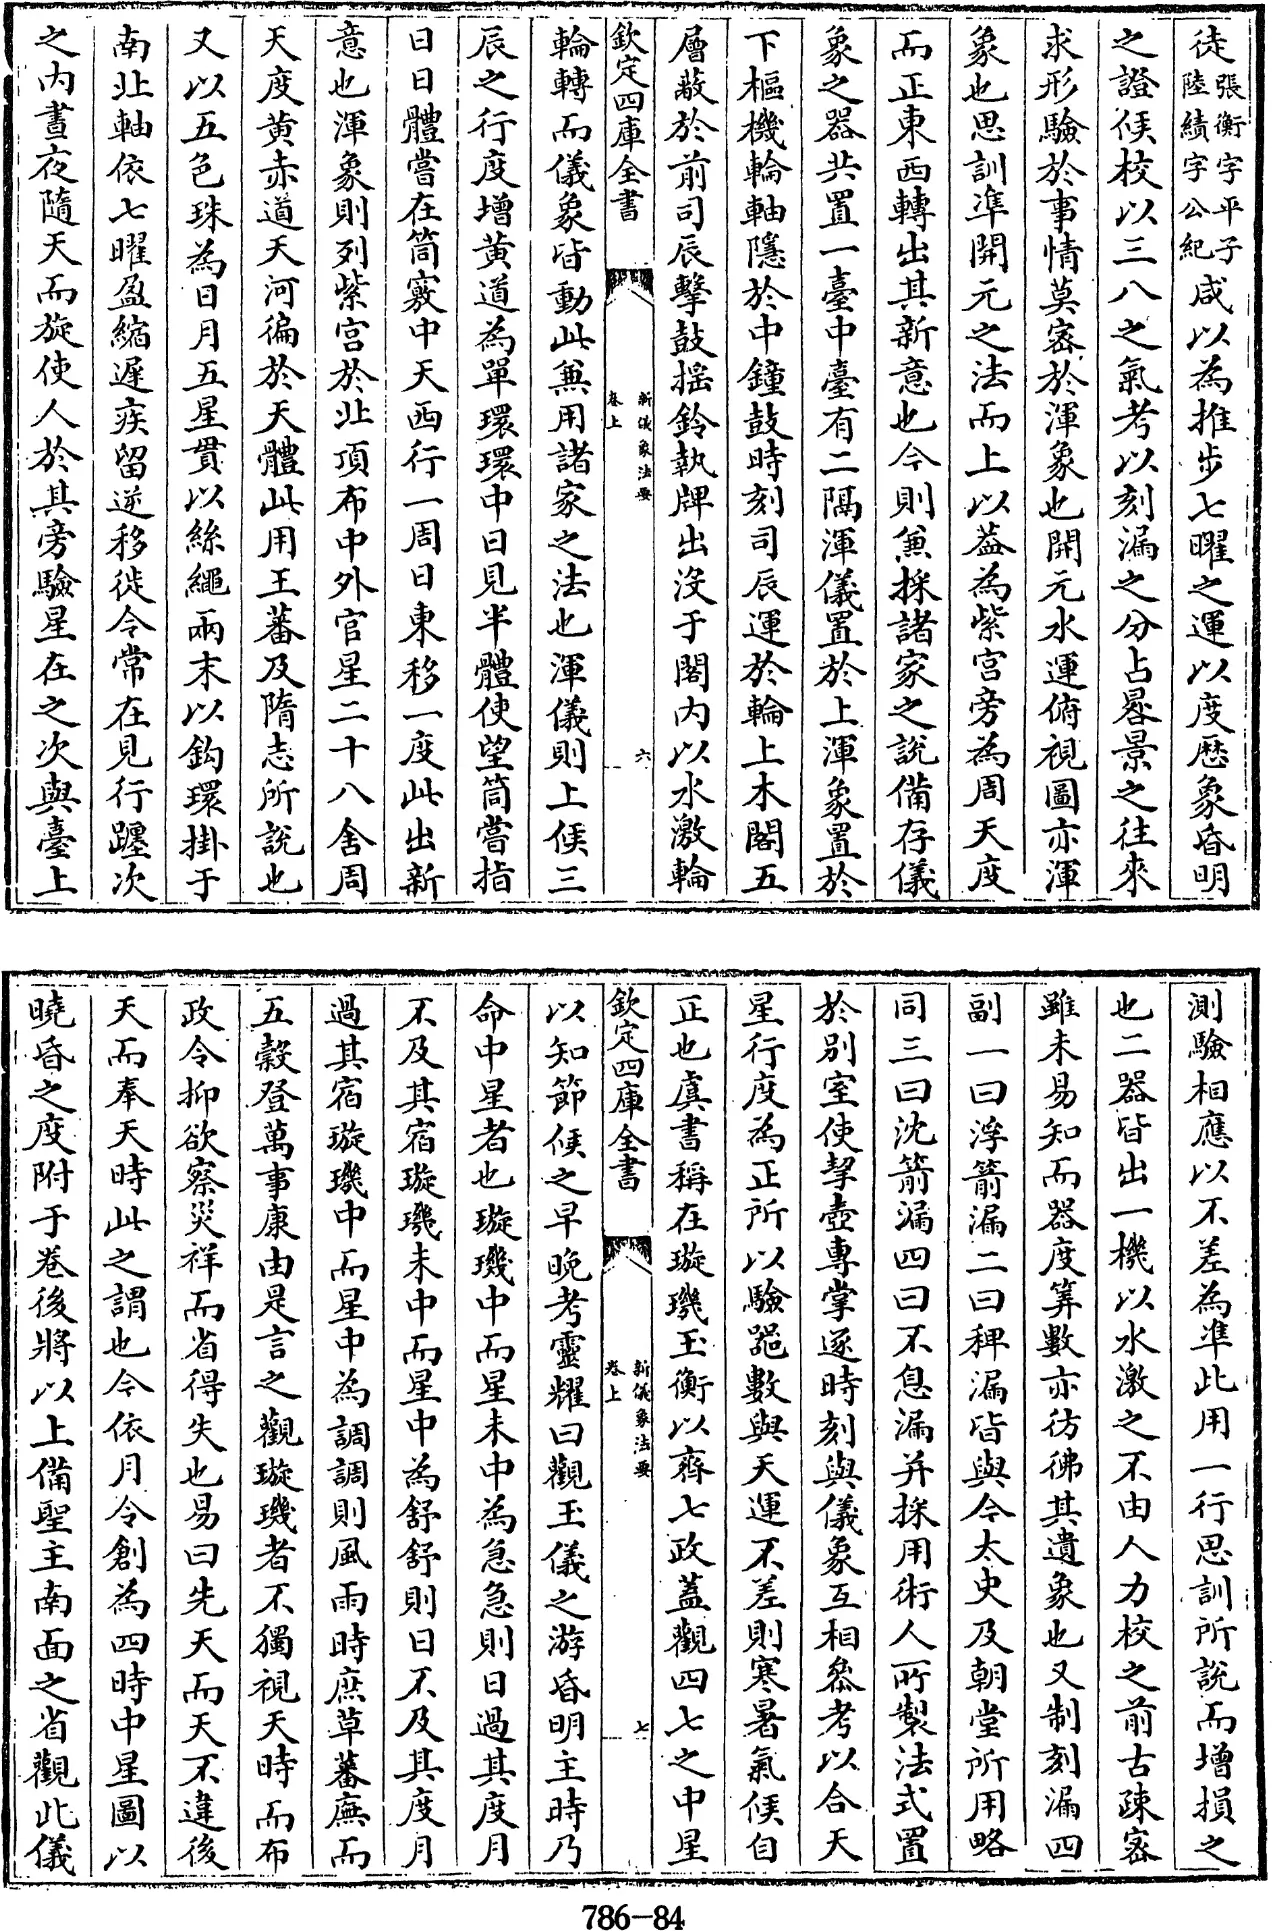 徒張衡字平子陸績字公紀咸以為推步七曜之運以度厯象昏明
之證候校以三八之氣考以刻漏之分占晷景之往來
求形驗於事情莫宻於渾象也開元水運俯視圖亦渾
象也思訓凖開元之法而上以葢為紫宫旁為周天度
而正東西轉出其新意也今則兼採諸家之說備存儀
象之器共置一臺中臺有二隔渾儀置於上渾象置於
下樞機輪軸隱於中鐘鼓時刻司辰運於輪上木閣五
層蔽於前司辰擊鼓搖鈴執牌出没于閣内以水激輪
欽定四庫全書
新儀象法要
卷上
六
輪轉而儀象皆動此兼用諸家之法也渾儀則上候三
辰之行度增黄道為單環環中日見半體使望筒嘗指
日日體嘗在筒竅中天西行一周日東移一度此出新
意也渾象則列紫宫於北頂布中外官星二十八舍周
天度黄赤道天河徧於天體此用王蕃及隋志所說也
又以五色珠為日月五星貫以絲繩兩末以鈎環掛于
南北軸依七曜盈縮遲疾留逆移徙令常在見行躔次
之内晝夜隨天而旋使人於其旁驗星在之次與臺上
測驗相應以不差為凖此用一行思訓所說而增損之
也二器皆出一機以水激之不由人力校之前古疎宻
雖未易知而器度筭數亦彷彿其遺象也又制刻漏四
副一曰浮箭漏二曰秤漏皆與今太史及朝堂所用略
同三曰沈箭漏四曰不息漏并採用術人所製法式置
於别室使挈壺專掌逐時刻與儀象互相叅考以合天
星行度為正所以驗器數與天運不差則寒暑氣候自
正也虞書稱在璇璣玉衡以齊七政蓋觀四七之中星
欽定四庫全書
新儀象法要
卷上
七
以知節候之早晚考靈耀曰觀玉儀之游昏明主時乃
命中星者也璇璣中而星未中為急急則日過其度月
不及其宿璇璣未中而星中為舒舒則日不及其度月
過其宿璇璣中而星中為調調則風雨時庶草蕃廡而
五穀登萬事康由是言之觀璇璣者不獨視天時而布
政令抑欲察災祥而省得失也易曰先天而天不違後
天而奉天時此之謂也今依月令創為四時中星圖以
曉昏之度附于卷後將以上備聖主南面之省觀此儀
786-84